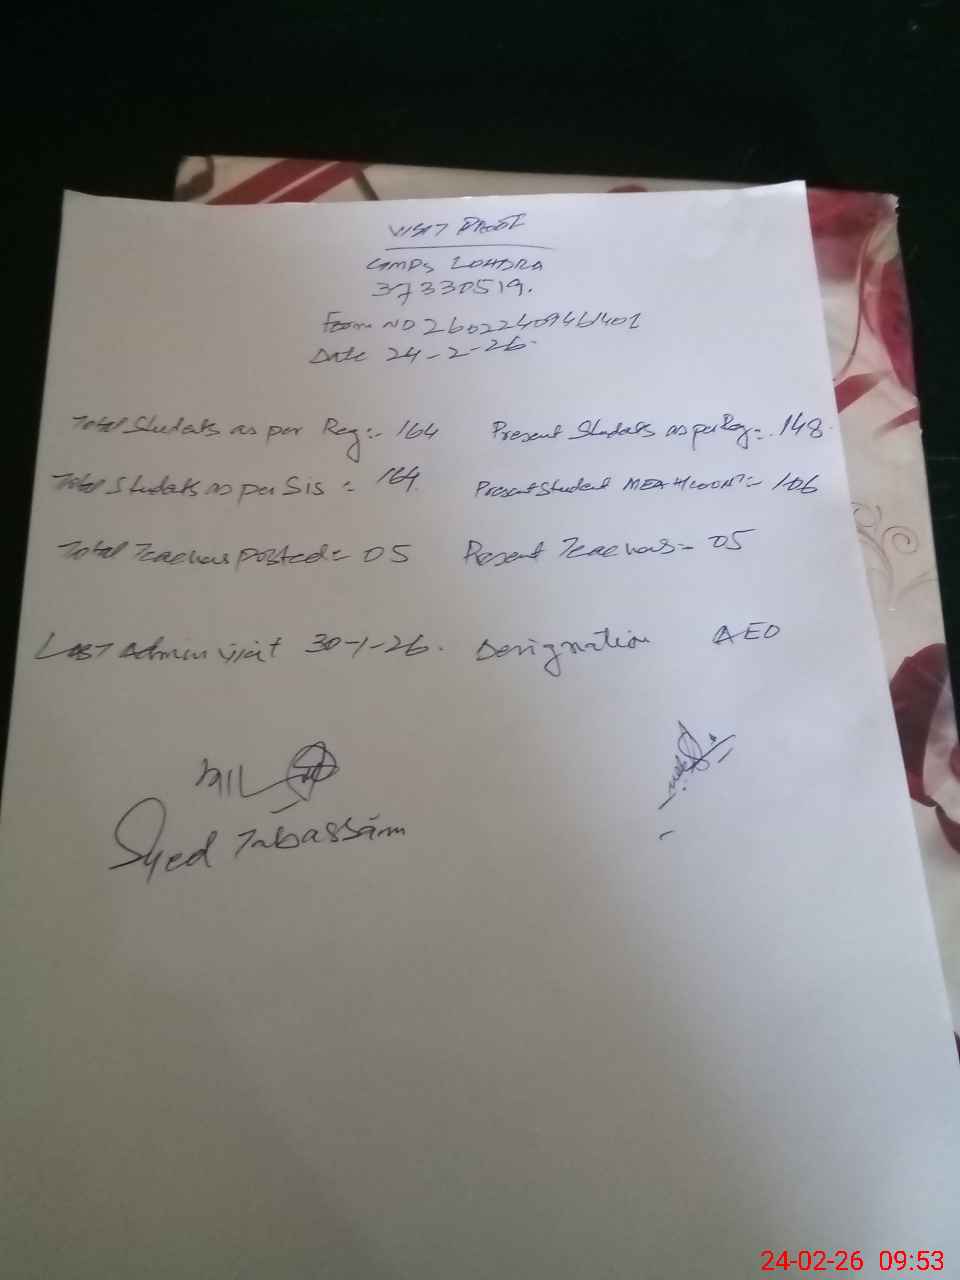 VISIT PROOF
GMPS LOHDRA
37330519.
Form NO 26022409461401
Date 24-2-26.
Total Students as per Reg:- 164 Present Students as per Reg:- 148.
Total Students as per SIS = 164. Present Student MEA Hcount:- 106
Total Teachers posted:- 05 Present Teachers:- 05
Last Admin visit 30-1-26. Designation AEO
Syed Tabassam
24-02-26 09:53